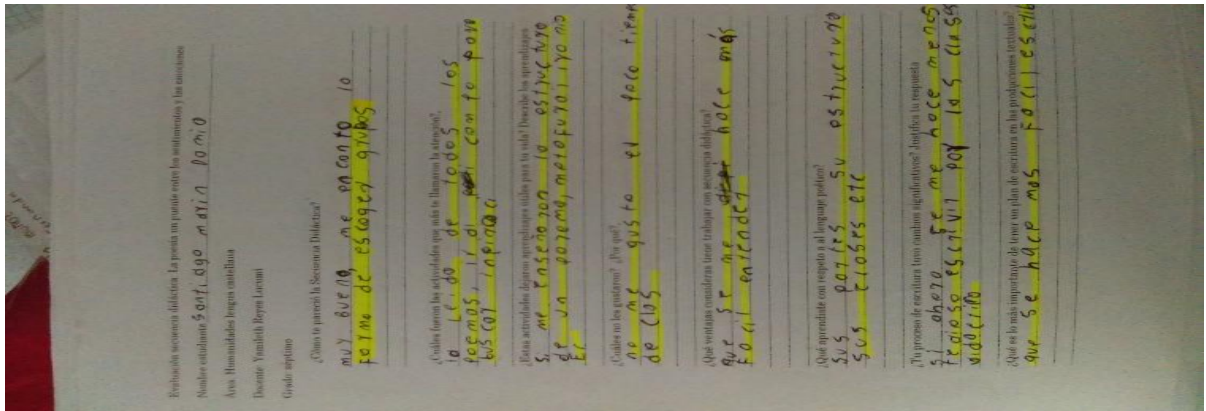 Evaluación secuencia didáctica. La poesía un puente entre los sentimientos y las emociones
Nombre estudiante Santiago marin
Área Humanidades lengua castellana
Docente Yamileth Reyes Lucumi
Grado séptimo
¿Cómo te pareció la Secuencia Didáctica?
muy Buena, me enconto lo
Formo de escoger grupos
¿Cuáles fueron las actividades que más te llamaron la atención?
la Leido de todos los
Poemos, ir di con to poro
buscor
¿Estas actividades dejaron aprendizajes útiles para tu vida? Describe los aprendizajes
si me enseñoron lo estructuro
de un poremo, metofuro
¿Cuáles no les gustaron? ¿Por qué?
no me gusto el poco tiemp
de clos
¿Qué ventajas consideras tiene trabajar con secuencia didáctica?
que se me hoce más
Focil entender
¿Qué aprendiste con respeto a al lenguaje poético?
sus portes su estructuro
sus closes etc
¿Tu proceso de escritura tuvo cambios significativos? Justifica tu respuesta
si ohoro se me hoce menos
tedioso escrivir por los closs
¿Qué es lo más importante de tener un plan de escritura en las producciones textuales?
que se hace mas Focil escrib